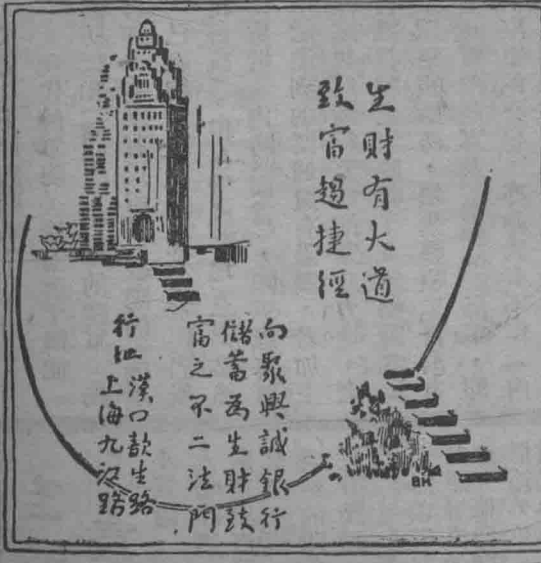 生財有大道
致富趨捷徑
向聚興誠銀行
儲蓄為生財致
富之不二法門
行址 漢口歆生路
上海九江路
BH